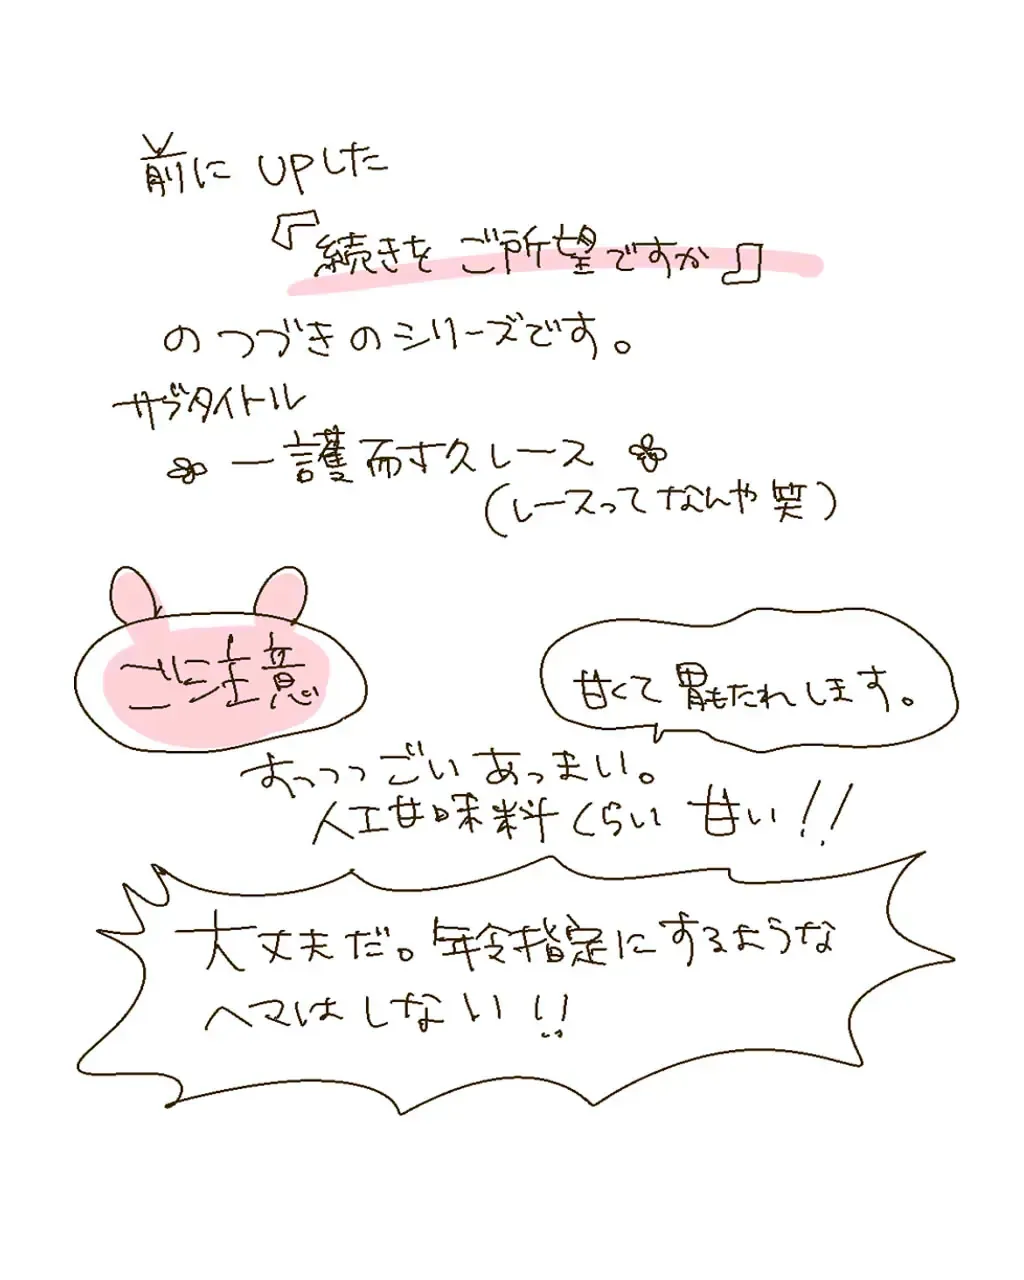 前にUPした
『続きをご所望ですか』
のつづきのシリーズです。
サブタイトル
一護耐久レース
(レースってなんや笑)
ご注意
甘くて胃もたれします。
すっっっごいあっまい。
人工甘味料くらい甘い!!
大丈夫だ。年令指定にするような
ヘマはしない!!